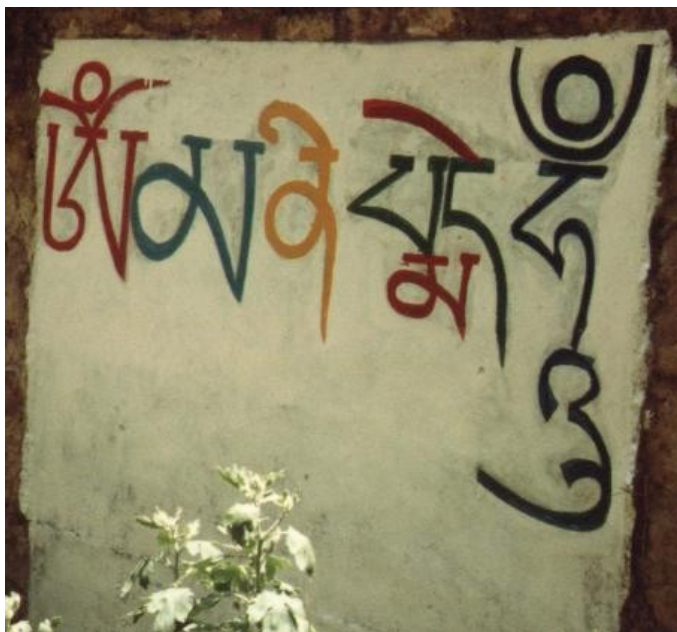 ཨོཾ མ ནི པདྨེ ཧཱུྃ